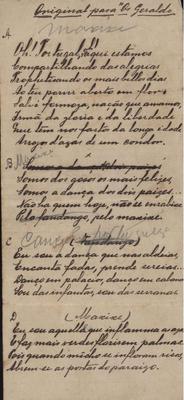 Original para "O Geraldo
A
Maxixe
Oh! Portugal, aqui estamos
Compartilhando das alegrias
Prophetizando os mais bellos dias
Ao teu porvir aberto em flor
Salvé formoza, nação que amamos,
Irmã da gloria e da liberdade
Que tem no fasto da longa edade
Arrojo d'azas de um condor.
B. Maxixe
Somos do gozo os mais felizes,
Somos a dança dos dois paizes...
Não ha quem hoje, não se enrabixe
Pelo fandango, pelo maxixe.
C (Fandango)
Eu sou a dança que nas aldeias,
Encanta fadas, prende sereias...
Danço em palacios, danço em cabanas
Sou das infantas, sou das serranas
D (Maxixe)
Eu sou aquella que inflamma
E faz mais verdes florirem palmas
Pois quando micho se infloram risos,
Abrem-se as portas do paraizo.